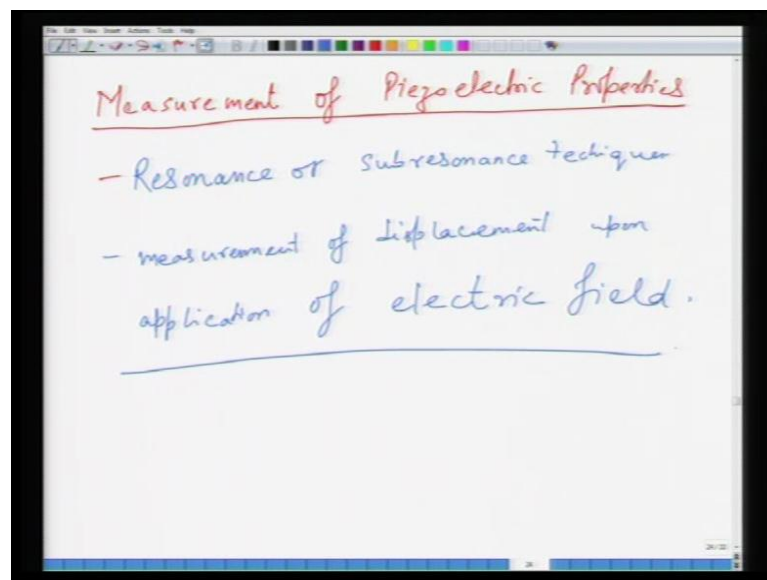 File Edit View Insert Actions Tools Help
Measurement of Piezoelectric Properties
- Resonance or subresonance techiques
- measurement of displacement upon
application of electric field.
24